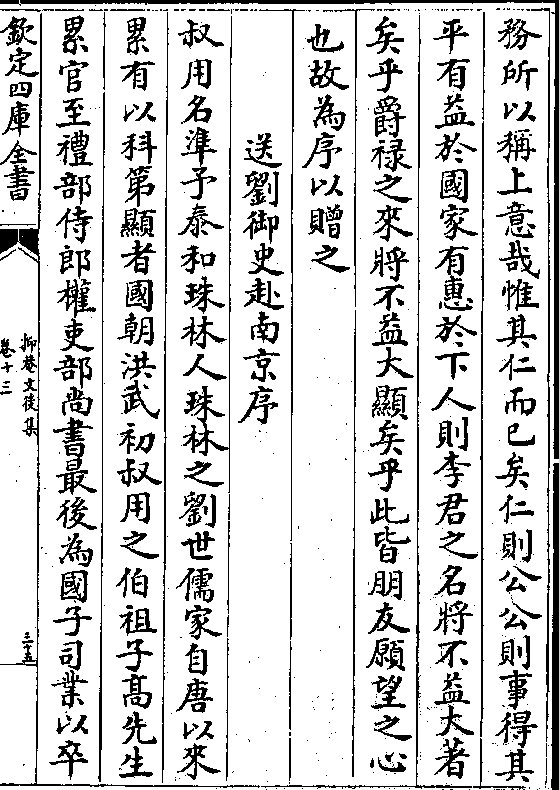 務所以稱上意哉惟其仁而已矣仁則公公則事得其
平有益於國家有惠於下人則李君之名將不益大著
矣乎爵祿之來將不益大顯矣乎此皆朋友願望之心
也故為序以贈之
送劉御史赴南京序
叔用名準予泰和珠林人珠林之劉世儒家自唐以來
累有以科第顯者國朝洪武初叔用之伯祖子髙先生
累官至禮部侍郎權吏部尚書最後為國子司業以卒
欽定四庫全書
抑菴文後集
卷十三
三十五